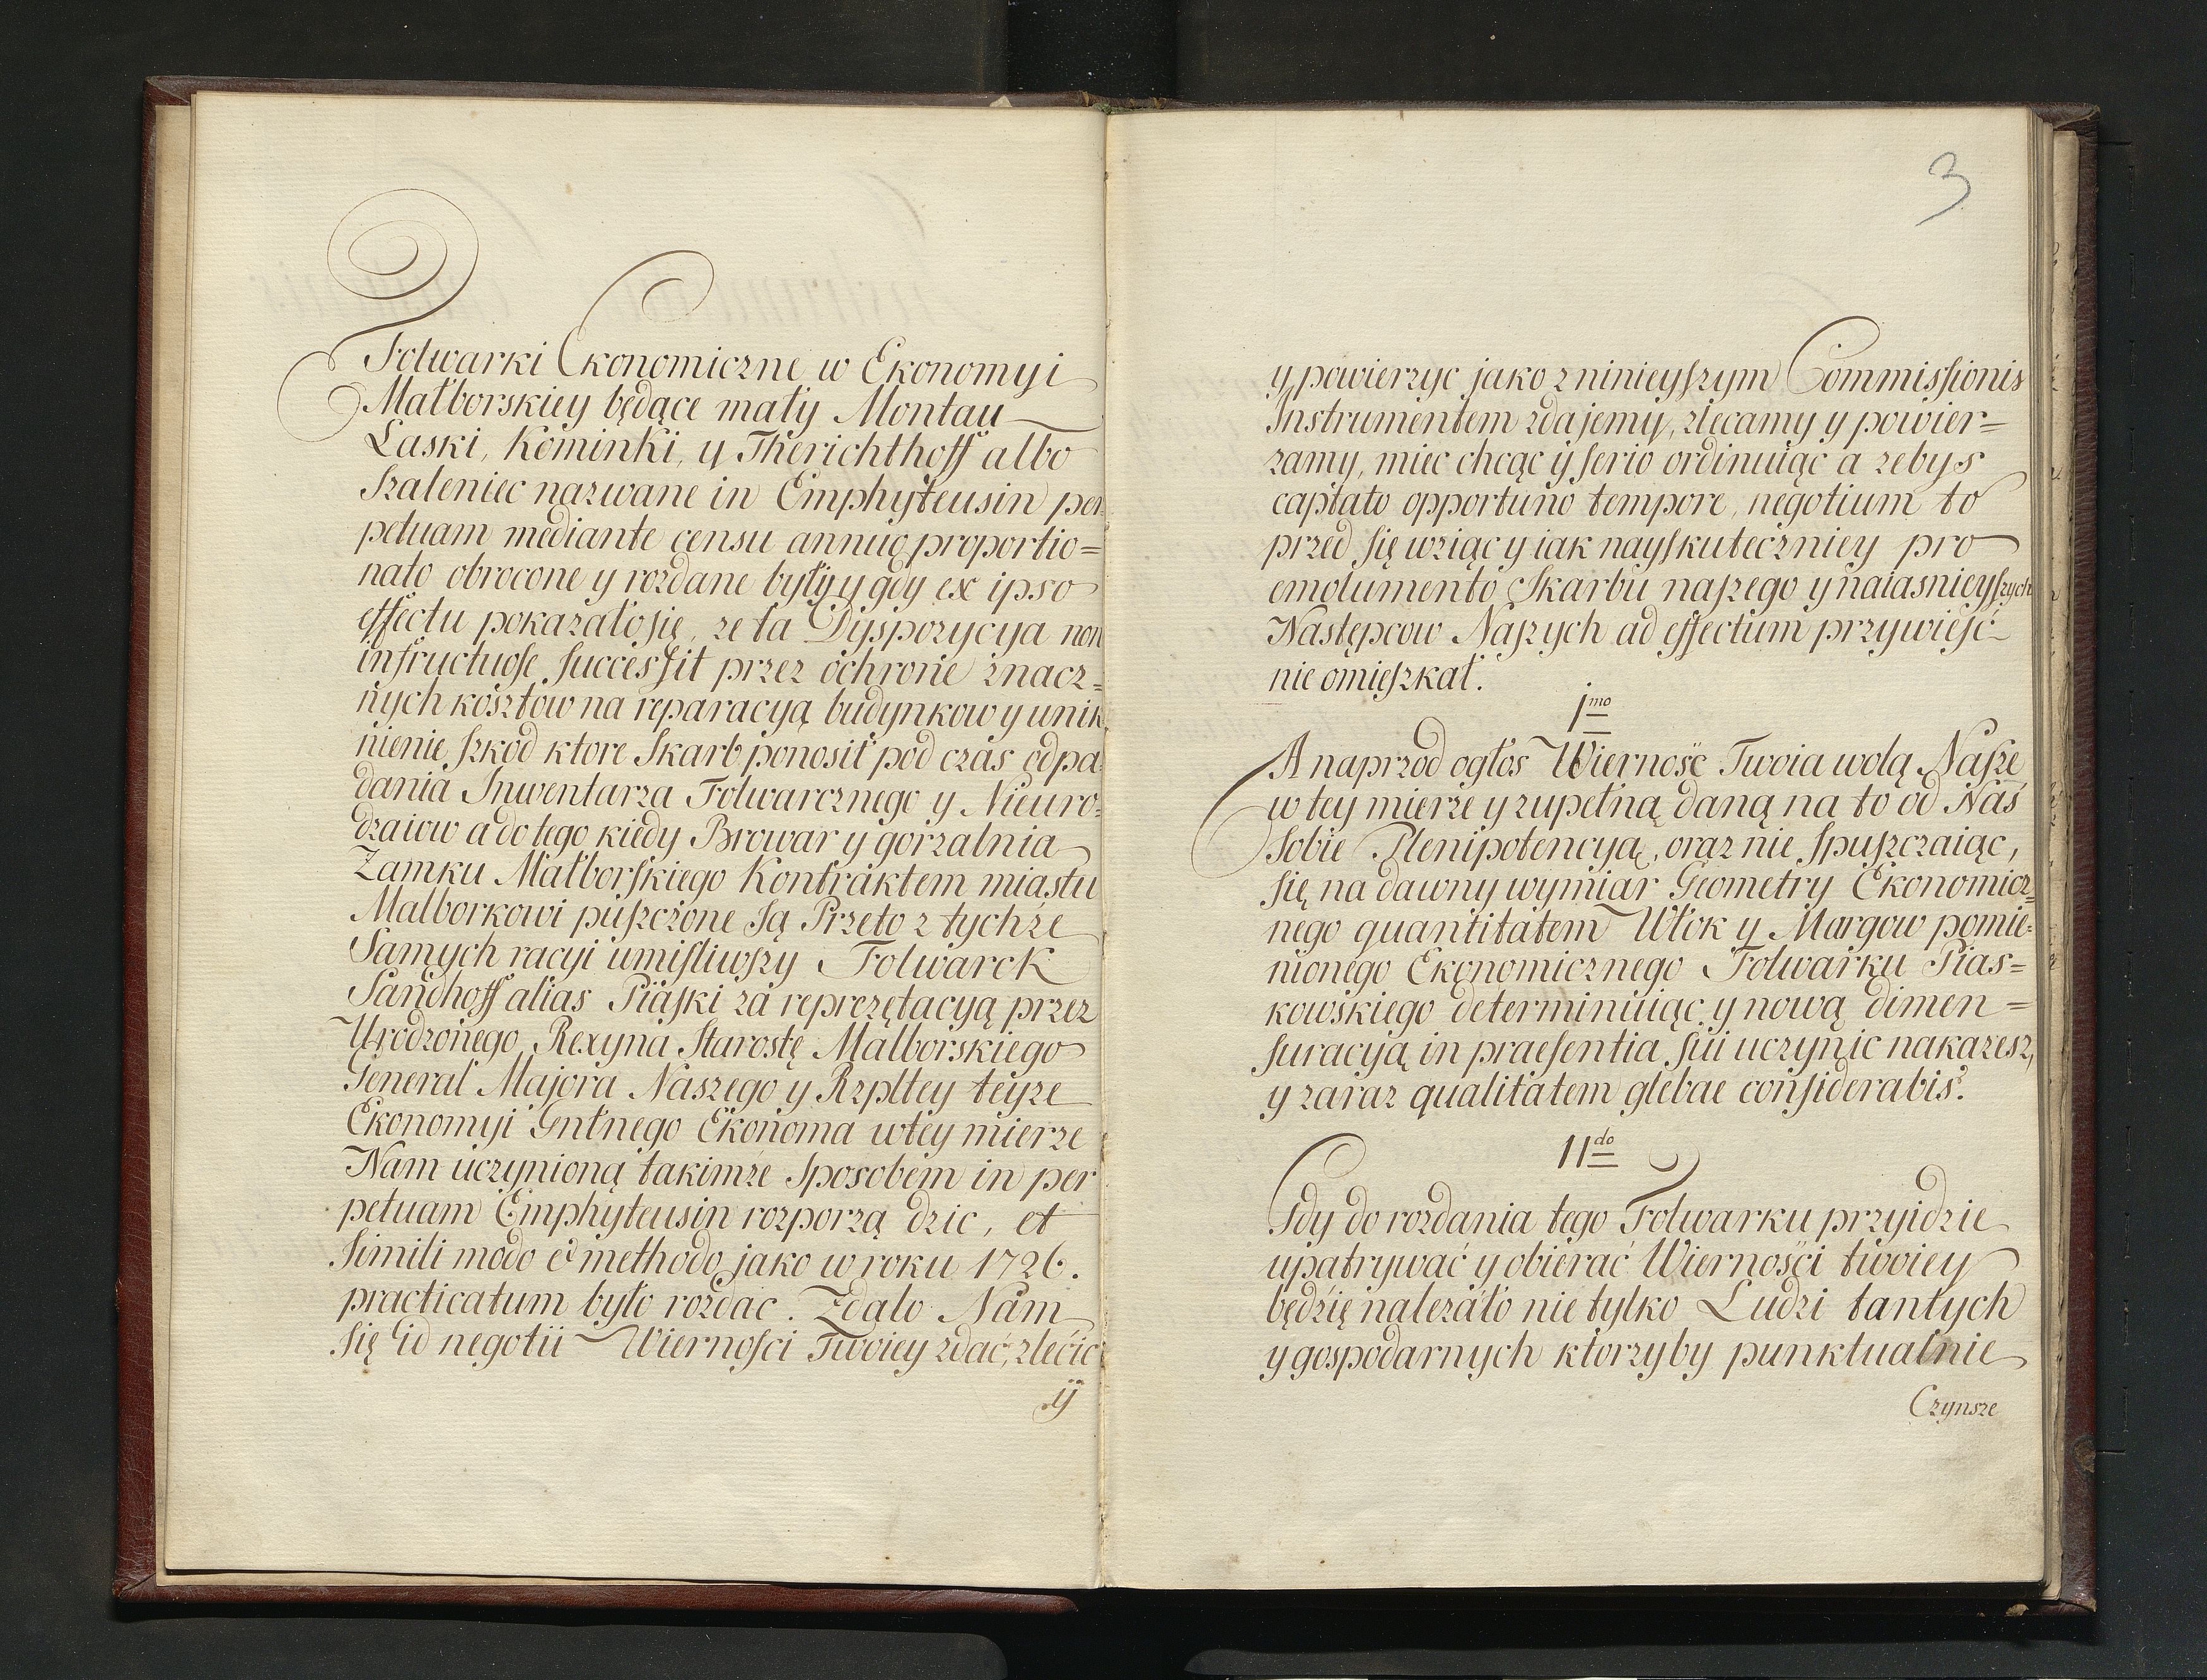 Folwarki Ekonomiczne w Ekonomyi
Małborskiey będące mały Montau
Laski, Kominki, y Therichthoff albo
Szaleniec nazwane in Emphyteusin per
petuam mediante censu annuo proportio=
nato obrocone y rozdane były y gdy ex ipso
effectu pokazało się, ze ta Dyspozycya non
infructuose successit przez ochronie znacz=
nych kosztow na reparacyą budynkow y unik
nienie szkod ktore Skarb ponosił pod czas odpa
dania Inwentarza Folwarcznego y Nieuro=
dzaiow a do tego kiedy Browar y gorzalnia
Zamku Małborskiego Kontraktem miastu
Malborkowi puszczone są Przeto z tychże
Samych racyi umisliwszy Folwarck
Sandhoff alias Piaski za reprezętacyą przez
Urodzonego Rexyna Starostę Malborskiego
General Majora Naszego y Rzpltey teyze
Ekonomyi Gnłnego Ekonoma wtey mierze
Nam uczynioną takimże Sposobem in per
petuam Emphyteusin rozporzą dzic, et
Simili modo & methodo jako w roku 1726.
practicatum było rozdac. Zdalo Nam
się id negotii Wiernosci Twoiey zdać, zlećic
ÿ
3
y powierzyc jako z ninieyszym Commissionis
Instrumentem zdajemy, zlecamy y powier=
zamy, miec chcąc y serio ordinuiąc a zebys
captato opportuno tempore, negotium to
przed się wziąc y iak nayskuteczniey pro
emolumento Skarbu naszego y naiasnieyszych
Następcow Naszych ad effectum przywieść
nie omieszkał.
1mo
A naprzod ogłos Wierność Twoia wolą Nasze
w tey mierze y zupełną daną na to od Nas
Sobie Plenipotencyą, oraz nie Spuszczaiąc,
się na dawny wymiar Geometry Ekonomicz=
nego quantitatem Włok y Margow pomie=
nionego Ekonomicznego Folwarku Pias=
kowskiego determinuiąc y nową dimen=
suracyją in praesentia sui uczynic nakazesz,
y zaraz qualitatem glebae considerabis.
11do
Gdy do rozdania tego Folwarku przyidzie
upatrywać y obierać Wierności twoiey
będzię nalezáło nie tylko Ludzi tantych
y gospodarnych ktorzyby punktualnie
Czynsze